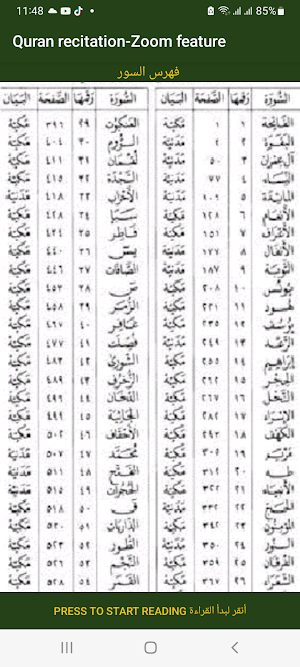 11:48
85%
Quran recitation-Zoom feature
فهرس السور
السُّورَة رقمها الصفحة البيان السُّورَة رقمها الصفحة البيان
الفاتحة ١ ١ مكية العنكبوت ٢٩ ٣٩٦ مكية
البقرة ٢ ٢ مدنية الروم ٣٠ ٤٠٤ مكية
آل عمران ٣ ٥٠ مدنية لقمان ٣١ ٤١١ مكية
النساء ٤ ٧٧ مدنية السجدة ٣٢ ٤١٥ مكية
المائدة ٥ ١٠٦ مدنية الأحزاب ٣٣ ٤١٨ مدنية
الأنعام ٦ ١٢٨ مكية سبأ ٣٤ ٤٢٨ مكية
الأعراف ٧ ١٥١ مكية فاطر ٣٥ ٤٣٤ مكية
الأنفال ٨ ١٧٧ مدنية يس ٣٦ ٤٤٠ مكية
التوبة ٩ ١٨٧ مدنية الصافات ٣٧ ٤٤٦ مكية
يونس ١٠ ٢٠٨ مكية ص ٣٨ ٤٥٣ مكية
هود ١١ ٢٢١ مكية الزمر ٣٩ ٤٥٨ مكية
يوسف ١٢ ٢٣٥ مكية غافر ٤٠ ٤٦٧ مكية
الرعد ١٣ ٢٤٩ مدنية فصلت ٤١ ٤٧٧ مكية
إبراهيم ١٤ ٢٥٥ مكية الشورى ٤٢ ٤٨٣ مكية
الحجر ١٥ ٢٦٢ مكية الزخرف ٤٣ ٤٨٩ مكية
النحل ١٦ ٢٦٧ مكية الدخان ٤٤ ٤٩٦ مكية
الإسراء ١٧ ٢٨٢ مكية الجاثية ٤٥ ٤٩٩ مكية
الكهف ١٨ ٢٩٣ مكية الأحقاف ٤٦ ٥٠٢ مكية
مريم ١٩ ٣٠٥ مكية محمد ٤٧ ٥٠٧ مدنية
طه ٢٠ ٣١٢ مكية الفتح ٤٨ ٥١١ مدنية
الأنبياء ٢١ ٣٢٢ مكية الحجرات ٤٩ ٥١٥ مدنية
الحج ٢٢ ٣٣٢ مدنية ق ٥٠ ٥١٨ مكية
المؤمنون ٢٣ ٣٤٢ مكية الذاريات ٥١ ٥٢٠ مكية
النور ٢٤ ٣٥٠ مدنية الطور ٥٢ ٥٢٣ مكية
الفرقان ٢٥ ٣٥٩ مكية النجم ٥٣ ٥٢٦ مكية
الشعراء ٢٦ ٣٦٧ مكية القمر ٥٤ ٥٢٨ مكية
PRESS TO START READING أنقر لبدأ القراءة